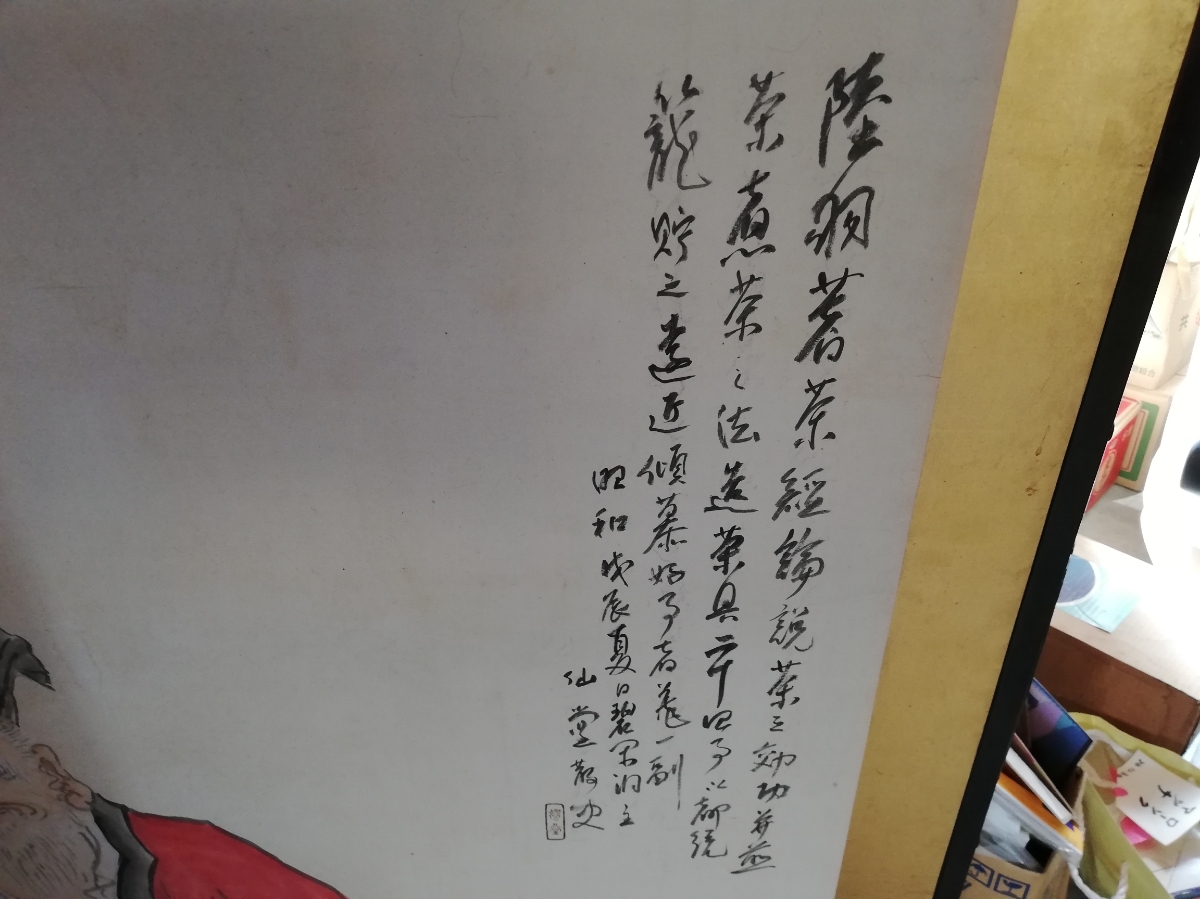 陸羽著茶經論説茶之効功并煎
茶煮茶之法造茶具二十四事以都統
籠貯之遠近傾慕好事者蔵一副
昭和戊辰夏日碧洞主
仙堂散史